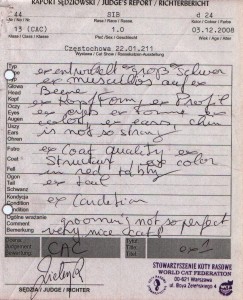 RAPORT SĘDZIOWSKI / JUDGE'S REPORT / RICHTERBERICHT
44 SIB d 24
13 (CAC) 1.0 03.12.2008
Klasa / Class / Klasse
Częstochowa 22.01.211
Typ
ex entwickelt groß Schwer
ex muscolos auf ex
Beene
Kopf
ex Kopfform, ex Profil
Head
ex eyes ex forme
color, ex ears, chin
is not so strong!
Futro
Coat
Fell
ex Coat quality ex
Structure, ex color
in red tabby
Ogon
Tail
ex tail
Schwanz
Kondycja
Condition
Kondition
ex Condition
Ogólne wrażenie
grooming not so perfect
very nice cat!
Ocena
Judgement
Bewertung
CAC
Tytuł
Title
Titel
ex 1
SĘDZIA / JUDGE / RICHTER
STOWARZYSZENIE KOTY RASOWE
WORLD CAT FEDERATION
00-621 Warszawa
ul. Boya Żeleńskiego 4